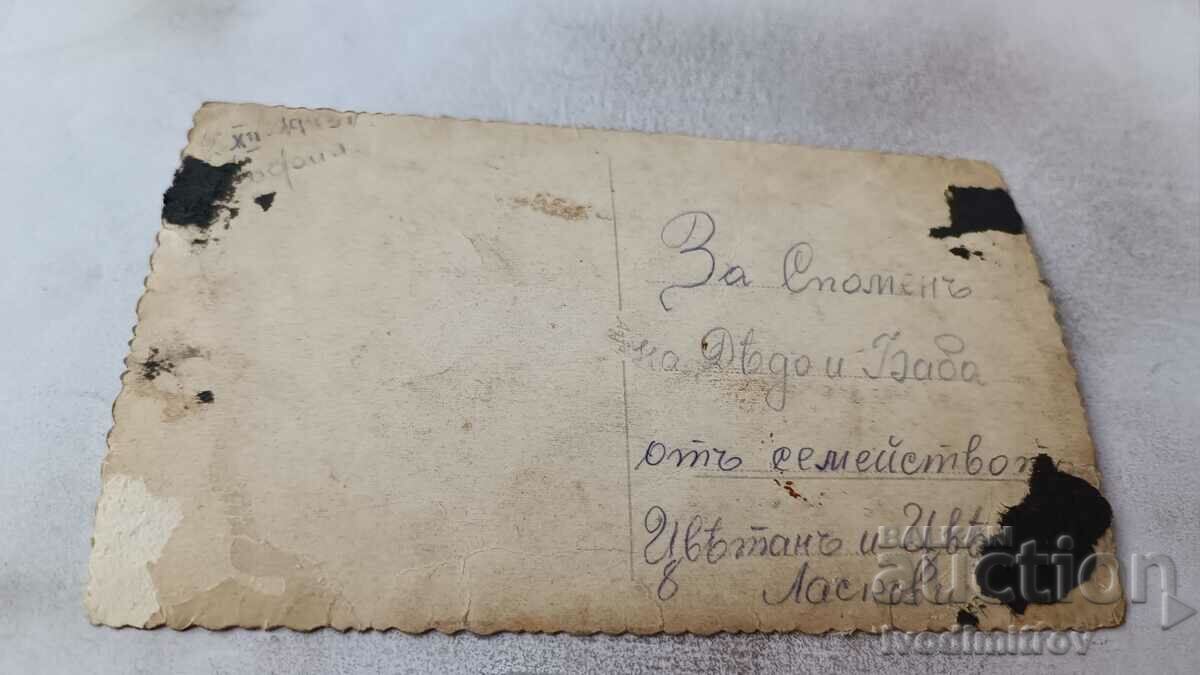 XII
За Споменъ
на Дѣдо и Баба
отъ семейството
Цвѣтанъ и
Ласкови
BALKAN
auction
Ivodimitrov